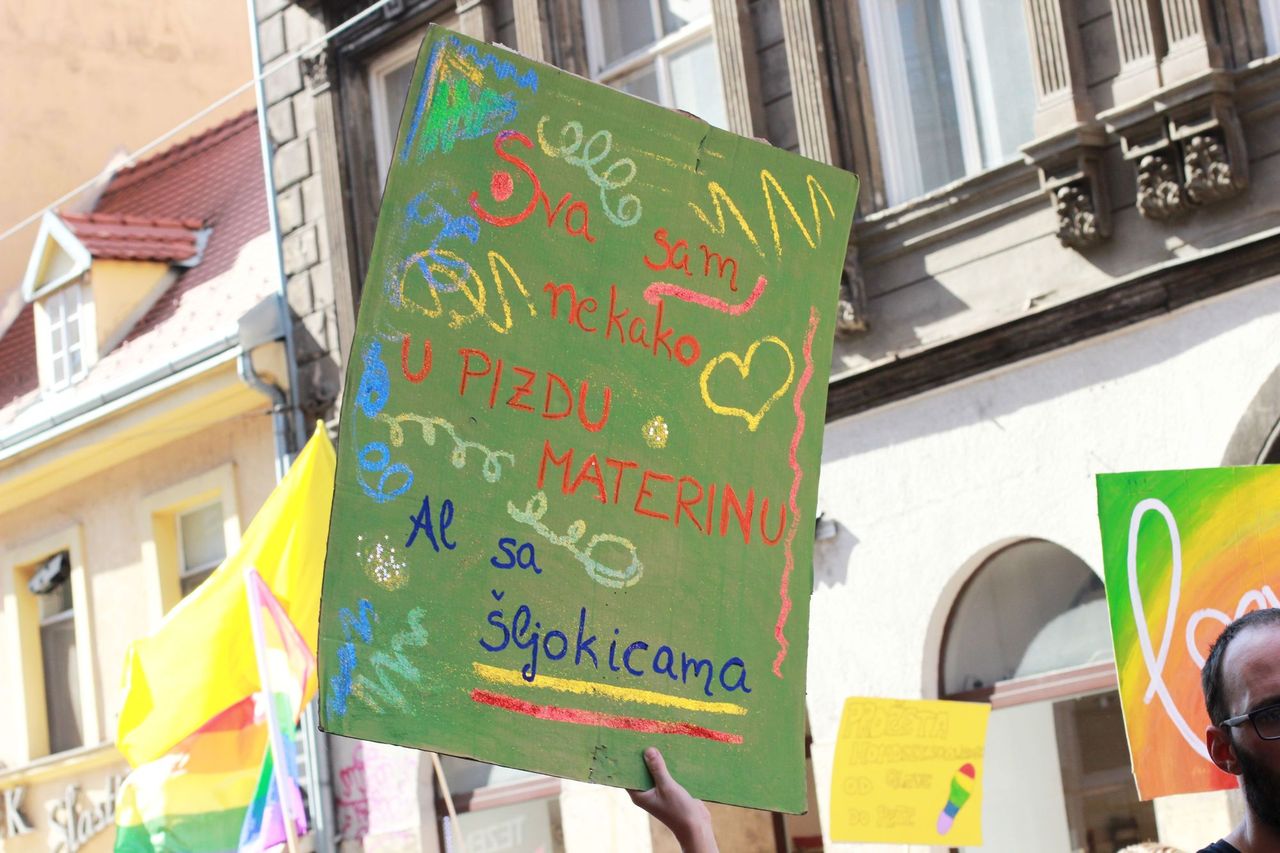 Sva
sam
nekako
U PIZDU
MATERINU
Al sa
šljokicama
OD GLAVE
DO PETE